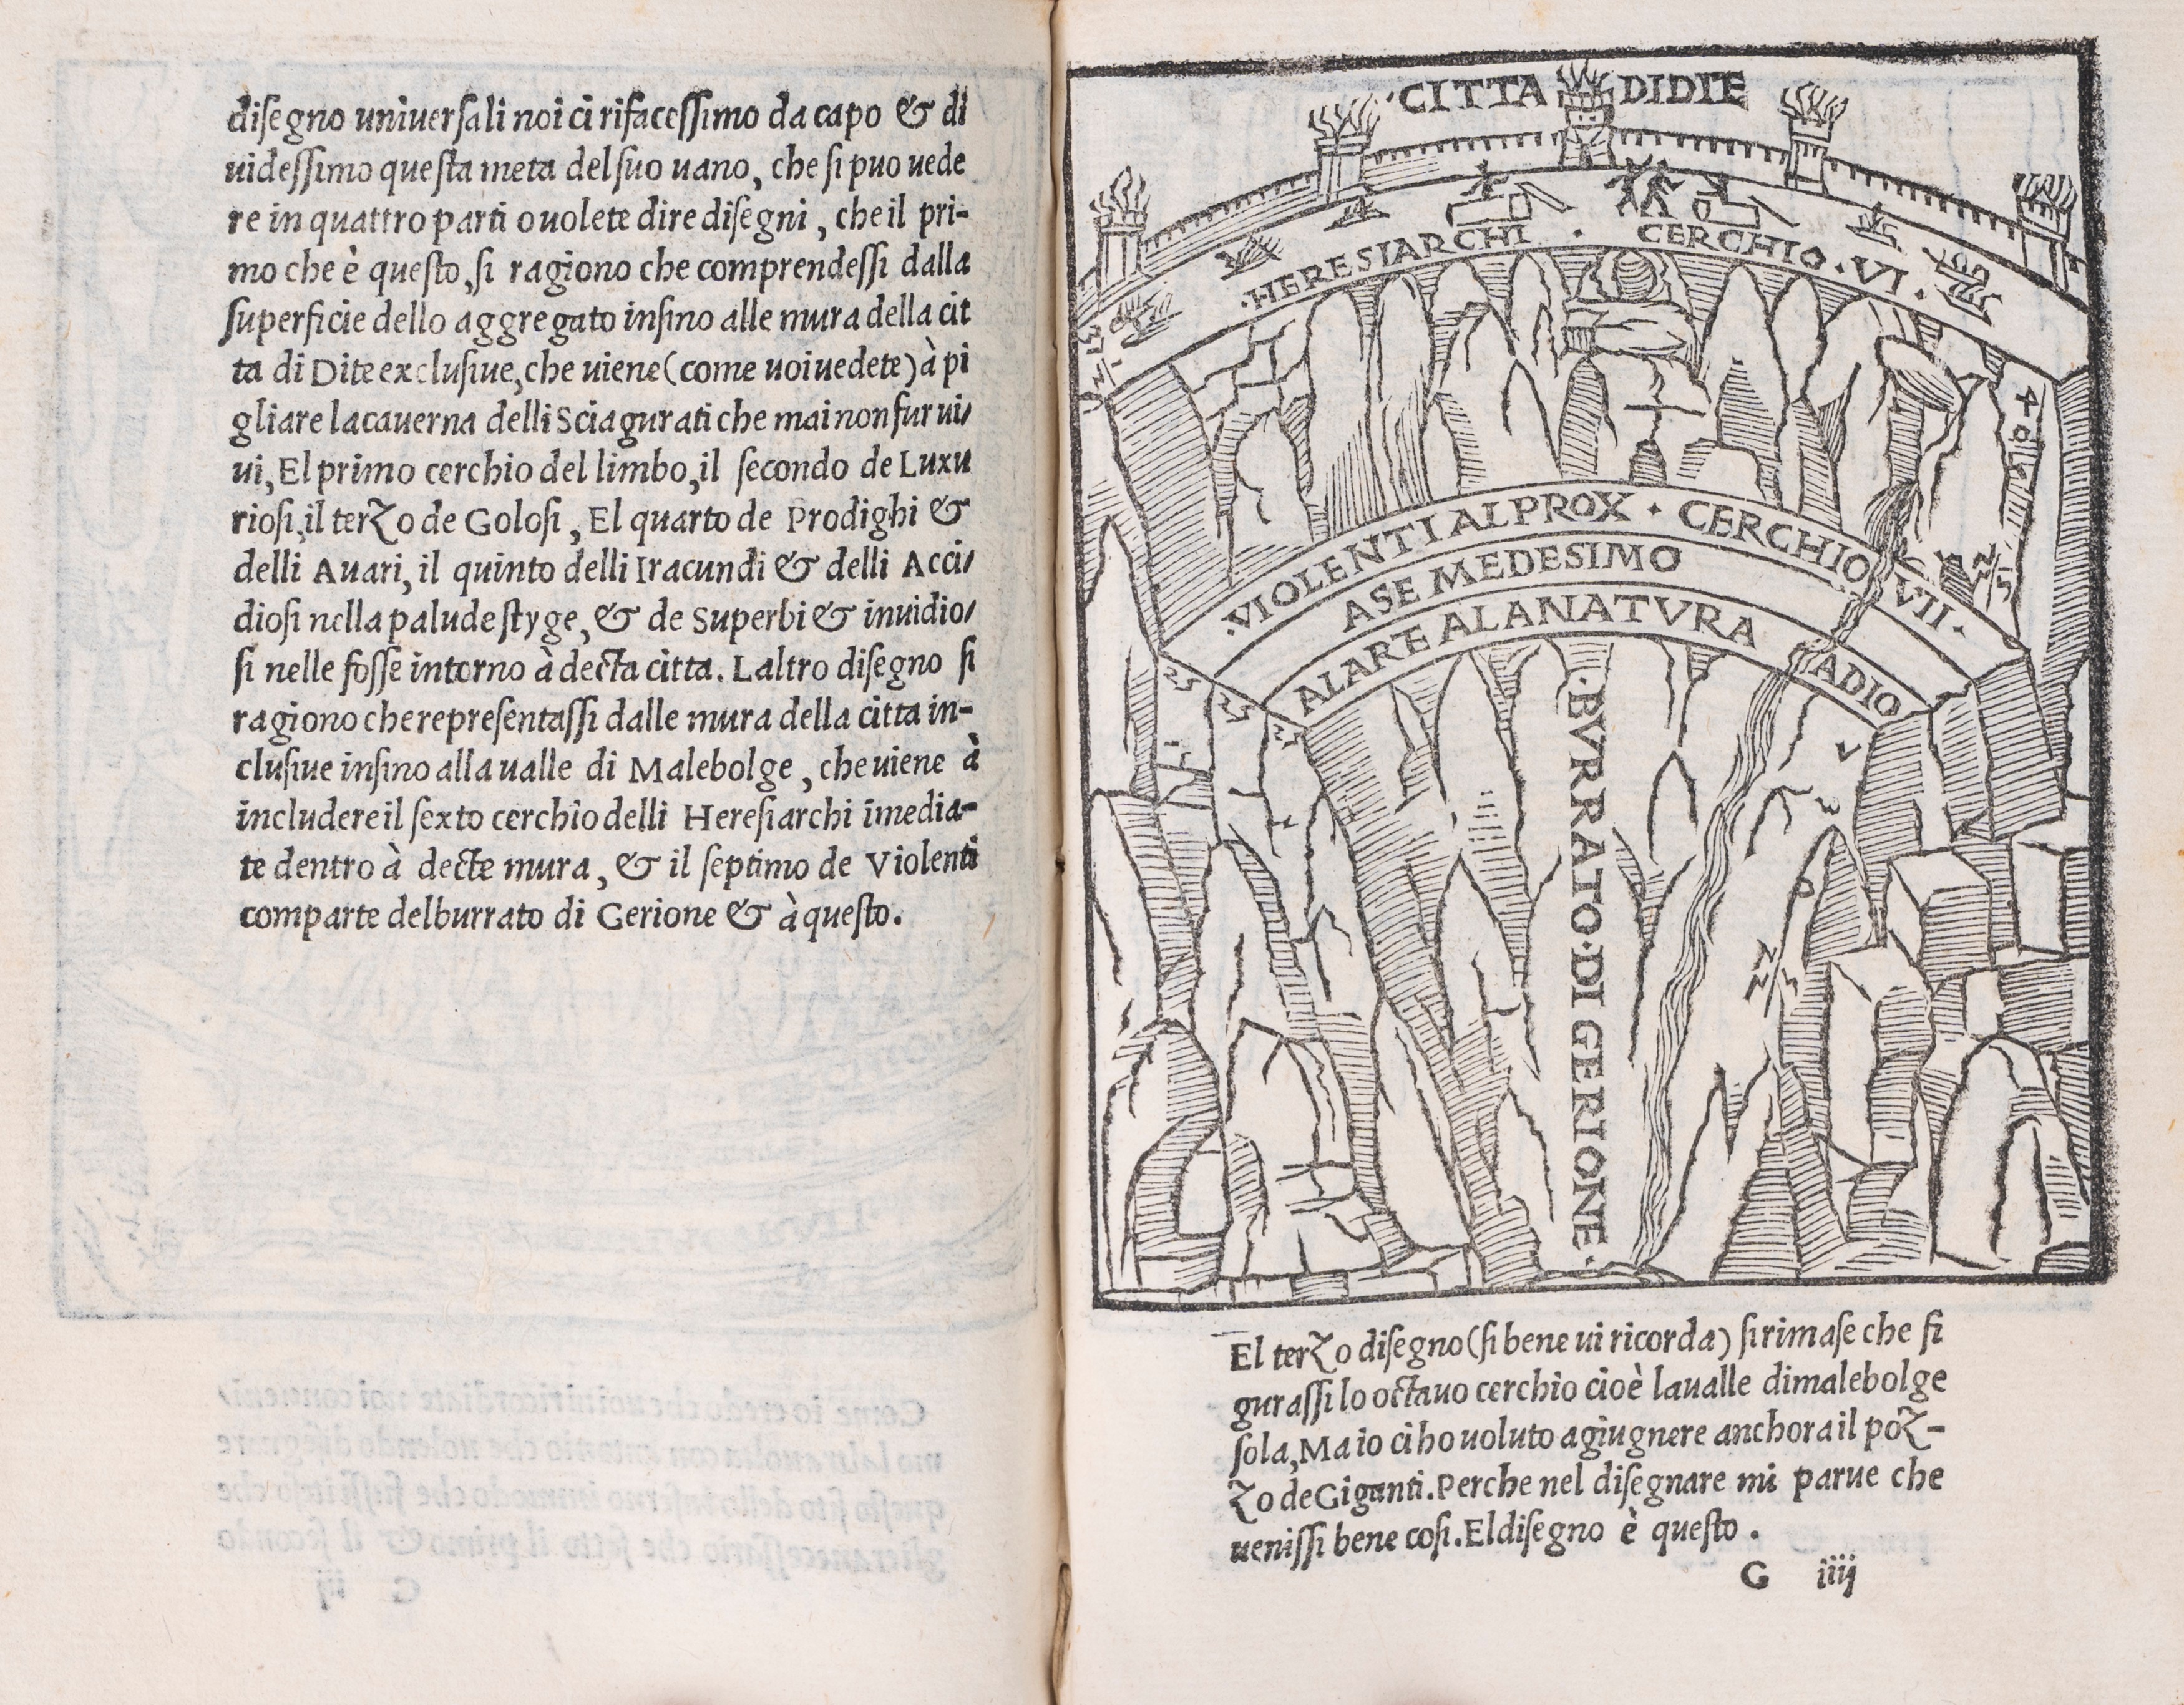 diſegno uniuerſali noi ci rifaceſſimo da capo & di
uideſſimo queſta meta del ſuo uano, che ſi puo uede
re in quattro parti o uolete dire diſegni, che il pri-
mo che è queſto, ſi ragiono che comprendeſſi dalla
ſuperficie dello aggregato inſino alle mura della cit
ta di Dite excluſiue, che uiene (come uoi uedete) à pi
gliare la cauerna delli Sciagurati che mai non fur ui/
ui, El primo cerchio del limbo, il ſecondo de Luxu
rioſi, il terzo de Goloſi, El quarto de Prodighi &
delli Auari, il quinto delli Iracundi & delli Acci/
dioſi nella palude ſtyge, & de Superbi & inuidio/
ſi nelle foſſe intorno à decta citta. Laltro diſegno ſi
ragiono che repreſentaſſi dalle mura della citta in-
cluſiue inſino alla ualle di Malebolge, che uiene à
includere il ſexto cerchio delli Hereſiarchi imedia-
te dentro à decte mura, & il ſeptimo de Violenti
comparte del burrato di Gerione & à queſto.
·CITTA DIDITE
·HERESIARCHI · CERCHIO·VI·
·VIOLENTI ALPROX · CERCHIO VII·
ASE MEDESIMO
ALARTE ALANATVRA ADIO
·BVRRATO·DI GERIONE·
El terzo diſegno (ſi bene ui ricorda) ſi rimaſe che fi
guraſſi lo octauo cerchio cioè la ualle di malebolge
ſola, Ma io ci ho uoluto agiugnere anchora il poz-
zo de Giganti. Perche nel diſegnare mi parue che
ueniſſi bene coſi. El diſegno è queſto.
G iiij